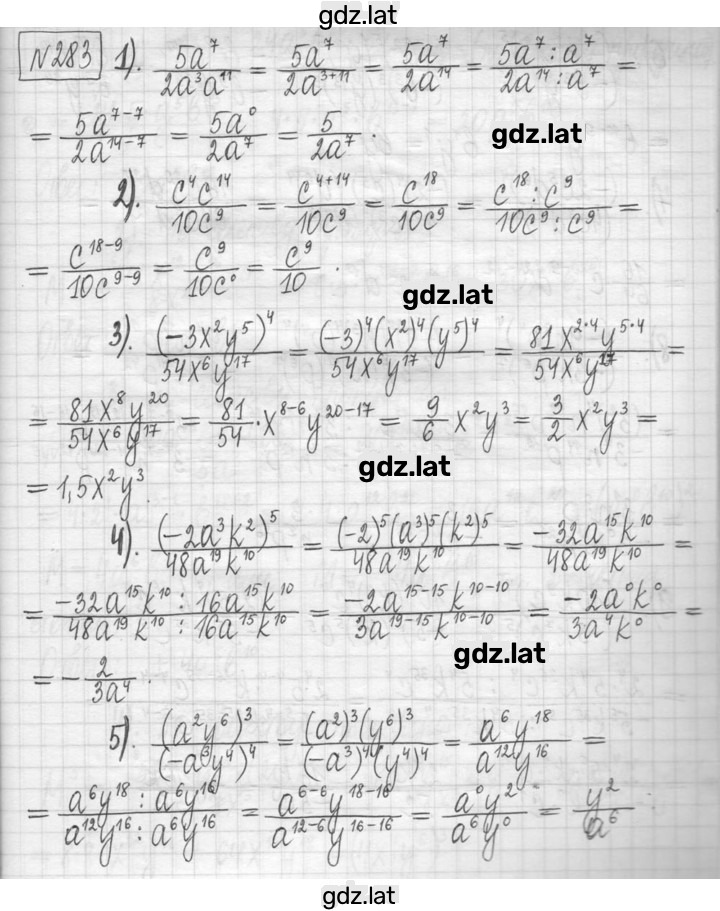 gdz.lat
№283 1). \frac{5a^7}{2a^3a^{11}} = \frac{5a^7}{2a^{3+11}} = \frac{5a^7}{2a^{14}} = \frac{5a^7 : a^7}{2a^{14} : a^7} =
= \frac{5a^{7-7}}{2a^{14-7}} = \frac{5a^0}{2a^7} = \frac{5}{2a^7}.
gdz.lat
2). \frac{c^4c^{14}}{10c^9} = \frac{c^{4+14}}{10c^9} = \frac{c^{18}}{10c^9} = \frac{c^{18} : c^9}{10c^9 : c^9} =
= \frac{c^{18-9}}{10c^{9-9}} = \frac{c^9}{10c^0} = \frac{c^9}{10}.
gdz.lat
3). \frac{(-3x^2y^5)^4}{54x^6y^{17}} = \frac{(-3)^4(x^2)^4(y^5)^4}{54x^6y^{17}} = \frac{81x^{2·4}y^{5·4}}{54x^6y^{17}} =
= \frac{81x^8y^{20}}{54x^6y^{17}} = \frac{81}{54}·x^{8-6}y^{20-17} = \frac{9}{6}x^2y^3 = \frac{3}{2}x^2y^3 =
gdz.lat
= 1,5x^2y^3.
4). \frac{(-2a^3k^2)^5}{48a^{19}k^{10}} = \frac{(-2)^5(a^3)^5(k^2)^5}{48a^{19}k^{10}} = \frac{-32a^{15}k^{10}}{48a^{19}k^{10}} =
= \frac{-32a^{15}k^{10} : 16a^{15}k^{10}}{48a^{19}k^{10} : 16a^{15}k^{10}} = \frac{-2a^{15-15}k^{10-10}}{3a^{19-15}k^{10-10}} = \frac{-2a^0k^0}{3a^4k^0} =
gdz.lat
= -\frac{2}{3a^4}.
5). \frac{(a^2y^6)^3}{(-a^3y^4)^4} = \frac{(a^2)^3(y^6)^3}{(-a^3)^4(y^4)^4} = \frac{a^6y^{18}}{a^{12}y^{16}} =
= \frac{a^6y^{18} : a^6y^{16}}{a^{12}y^{16} : a^6y^{16}} = \frac{a^{6-6}y^{18-16}}{a^{12-6}y^{16-16}} = \frac{a^0y^2}{a^6y^0} = \frac{y^2}{a^6}.
gdz.lat